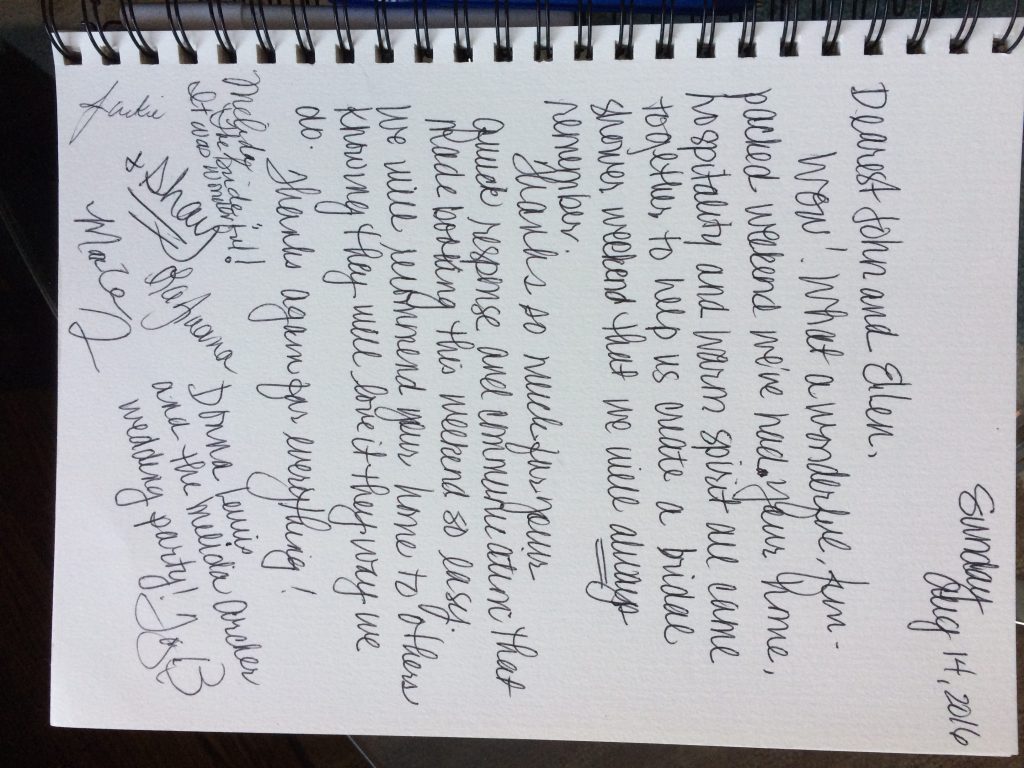 Sunday
Aug 14, 2016
Dearest John and Ellen,
Wow! What a wonderful, fun-
packed weekend we've had. Your home,
hospitality and warm spirit all came
together to help us create a bridal
shower weekend that we will always
remember.
Thanks so much for your
quick response and communication that
made booking this weekend so easy.
We will recommend your home to others
knowing they will love it they way we
do. Thanks again for everything!
Donna Lewis
and the
wedding party!
(The bride)!!
It was wonderful!
Jackie